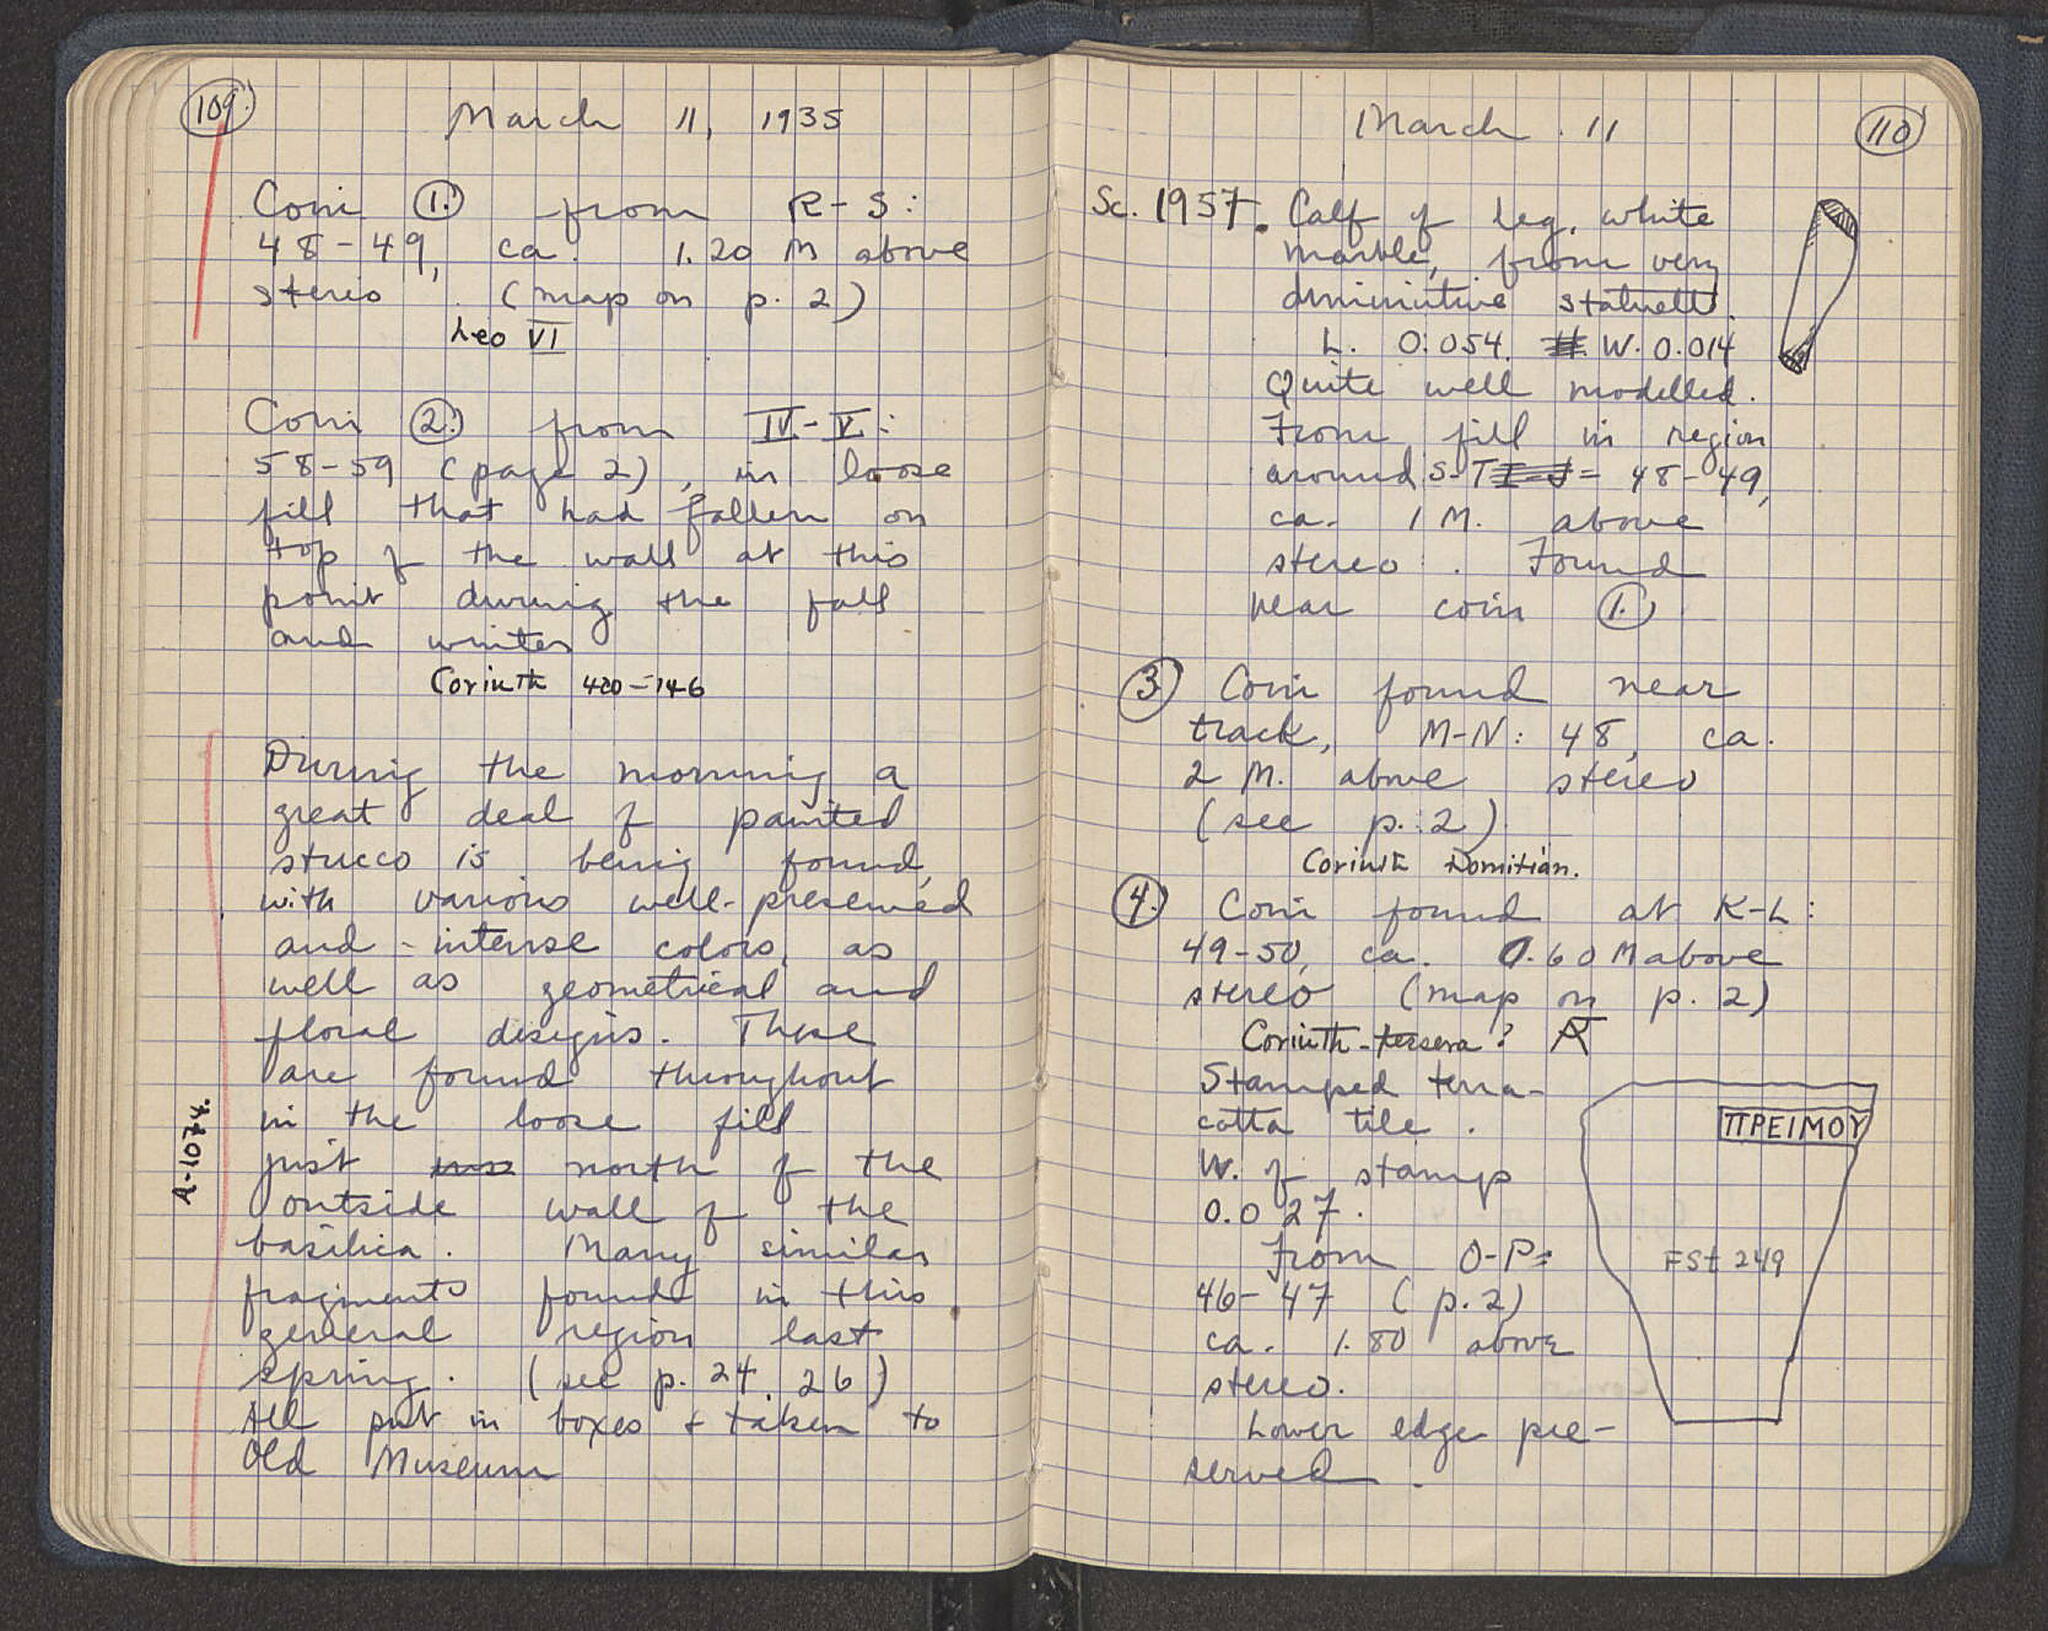 109.
March 11, 1935
Coin 1. from R-S:
48-49, ca. 1.20 M above
stereo. (map on p. 2)
Leo VI
Coin 2. from IV-V:
58-59 (page 2), in loose
fill that had fallen on
top of the wall at this
point during the fall
and winter
Corinth 400-146
During the morning a
great deal of painted
stucco is being found,
with various well-preserved
and intense colors, as
well as geometrical and
floral designs. These
are found throughout
in the loose fill
just north of the
outside wall of the
basilica. Many similar
fragments found in this
general region last
spring. (see p. 24, 26)
All put in boxes & taken to
Old Museum
A-1074.
March 11
110
Sc. 1957. Calf of leg, white
marble, from very
diminutive statuette.
L. 0.054. W. 0.014
Quite well modelled.
From fill in region
around S-T = 48-49,
ca. 1 M. above
stereo. Found
near coin 1.
3. Coin found near
track, M-N: 48, ca.
2 M. above stereo
(see p. 2)
Corinth Domitian.
4. Coin found at K-L:
49-50, ca. 0.60 M above
stereo (map on p. 2)
Corinth-tessera?
Stamped terra-
cotta tile.
W. of stamp
0.027.
From O-P:
46-47 (p. 2)
ca. 1.80 above
stereo.
Lower edge pre-
served.
ΠΡΕΙΜΟΥ
FSt 249